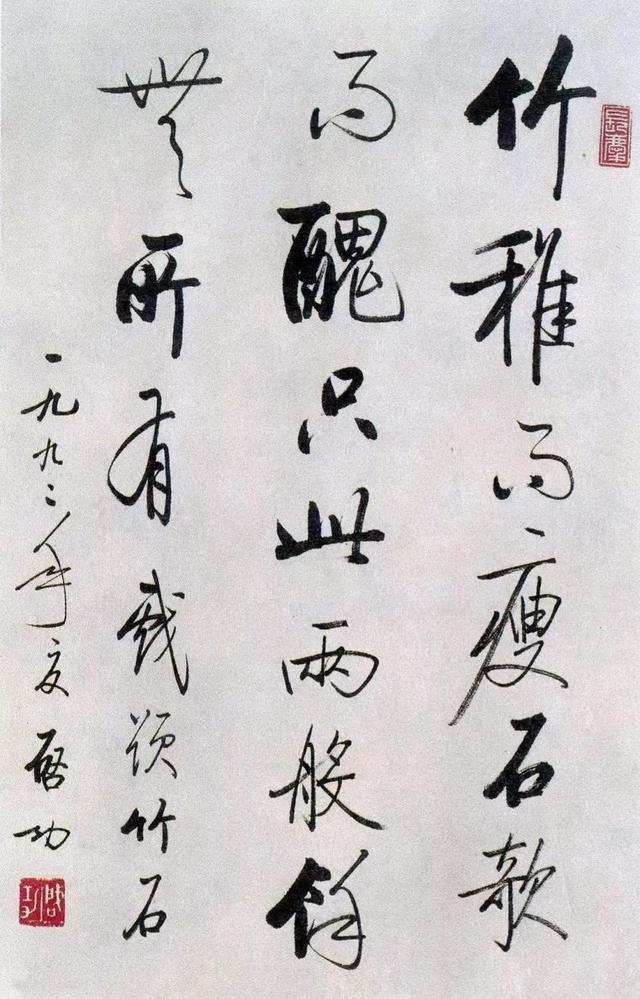 竹稚而瘦石欹
而醜只此兩般餘
無所有戲題竹石
一九九二年夏启功